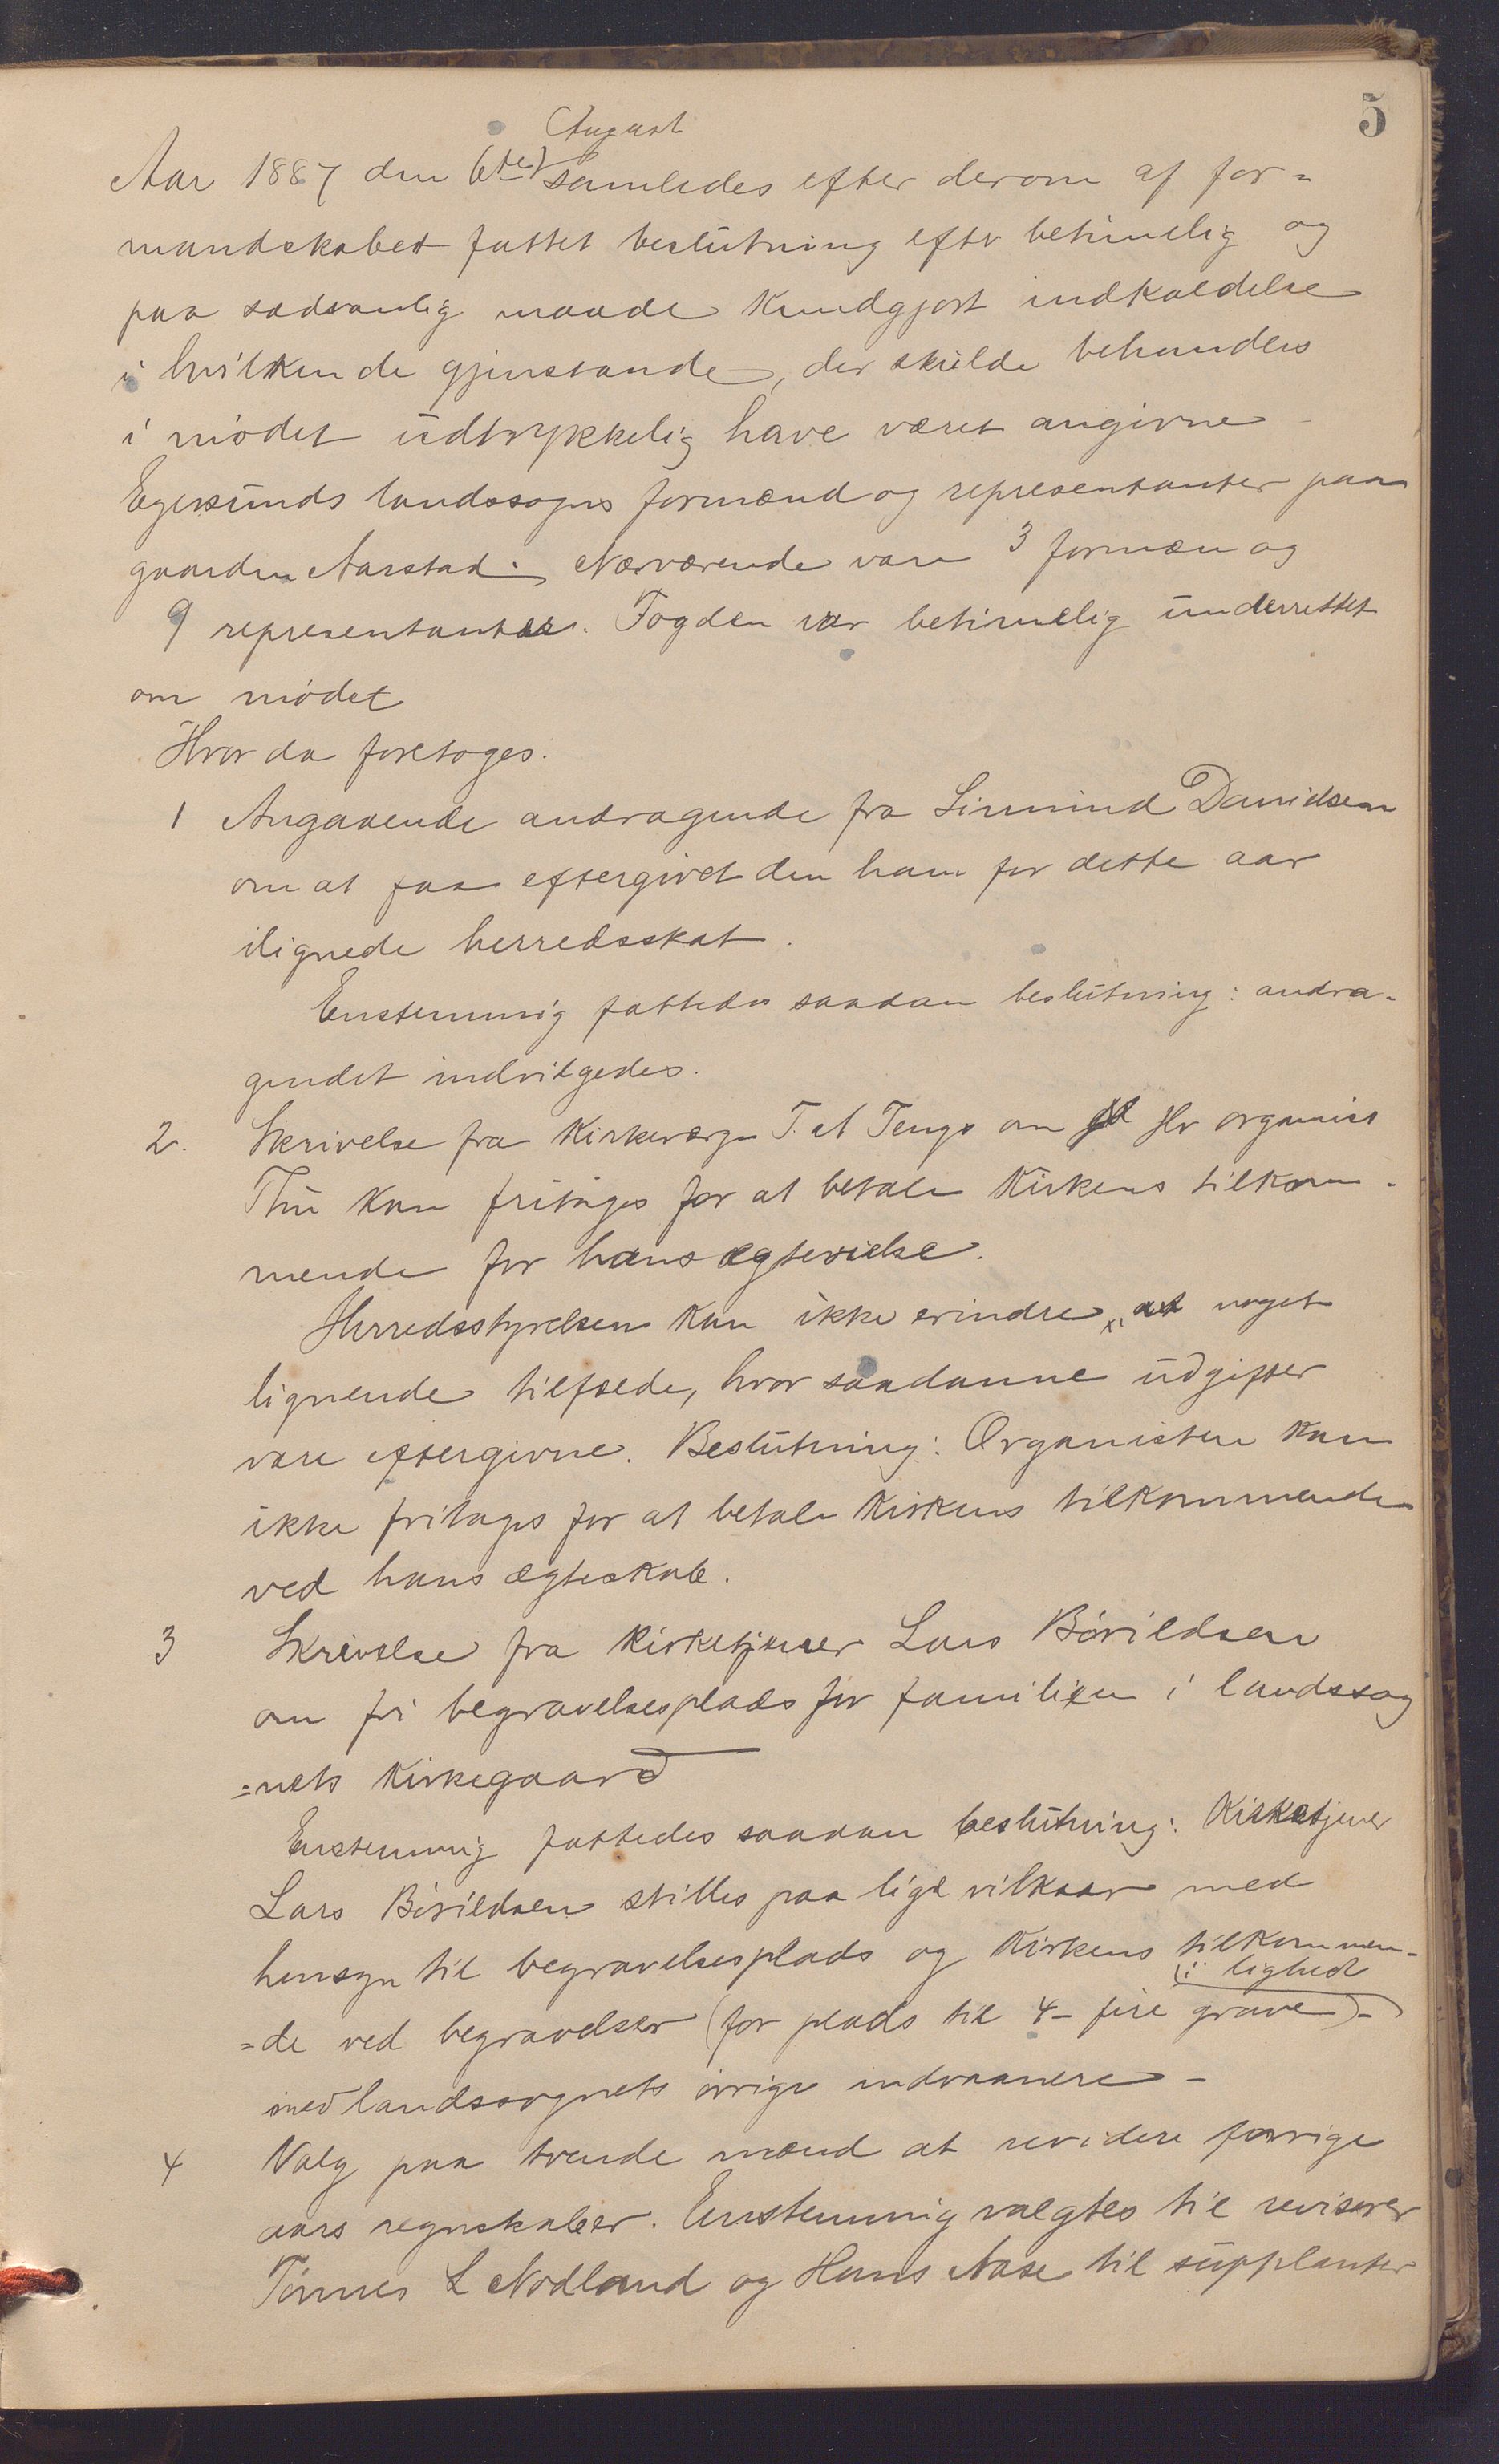 5
August
Aar 1887 den 6te samledes efter derom af for=
mandskabet fattet beslutning efter betimelig og
paa sædvanlig maade kundgjort indkaldelse
i hvilken de gjenstande, der skulde behandles
i mødet udtrykkelig have været angivne
Egersunds landssogns formænd og representanter paa
gaarden Aarstad. Nærværende vare 3 formæn og
9 representanter. Fogden var betimelig underrettet
om mødet
Hvor da foretoges.
1 Angaaende andragende fra Simund Davidsen
om at faa eftergivet den ham for dette aar
ilignede herredsskat.
Enstemmig fattedes saadan beslutning: andra-
gendet indvilgedes.
2. Skrivelse fra Kirkeværge T. A Tengs om Hr organist
Thu kan fritages for at betale Kirkens tilkom-
mende for hans ægtevielse.
Herredsstyrelsen kan ikke erindre, at noget
lignende tilfælde, hvor saadanne udgifter
vare eftergivne. Beslutning: Organisten kan
ikke fritages for at betale Kirkens tilkommende
ved hans ægteskab.
3 Skrivelse fra Kirketjener Lars Bøvildsen
om fri begravelsesplads for familien i landssog
=nets Kirkegaard
Enstemmig fattedes saadan beslutning: Kirketjener
Lars Bøvildsen stilles paa lige vilkaar med
hensyn til begravelsesplads og Kirkens tilkommen-
i lighed
=de ved begravelser (for plads til 4- fire grave)-
med landssognets øvrige indvaanere-
4 Valg paa tvende mænd at revidere forrige
aars regnskaber. Enstemmig valgtes til revisorer
Tønnes L Nodland og Hans Aase til supplanter